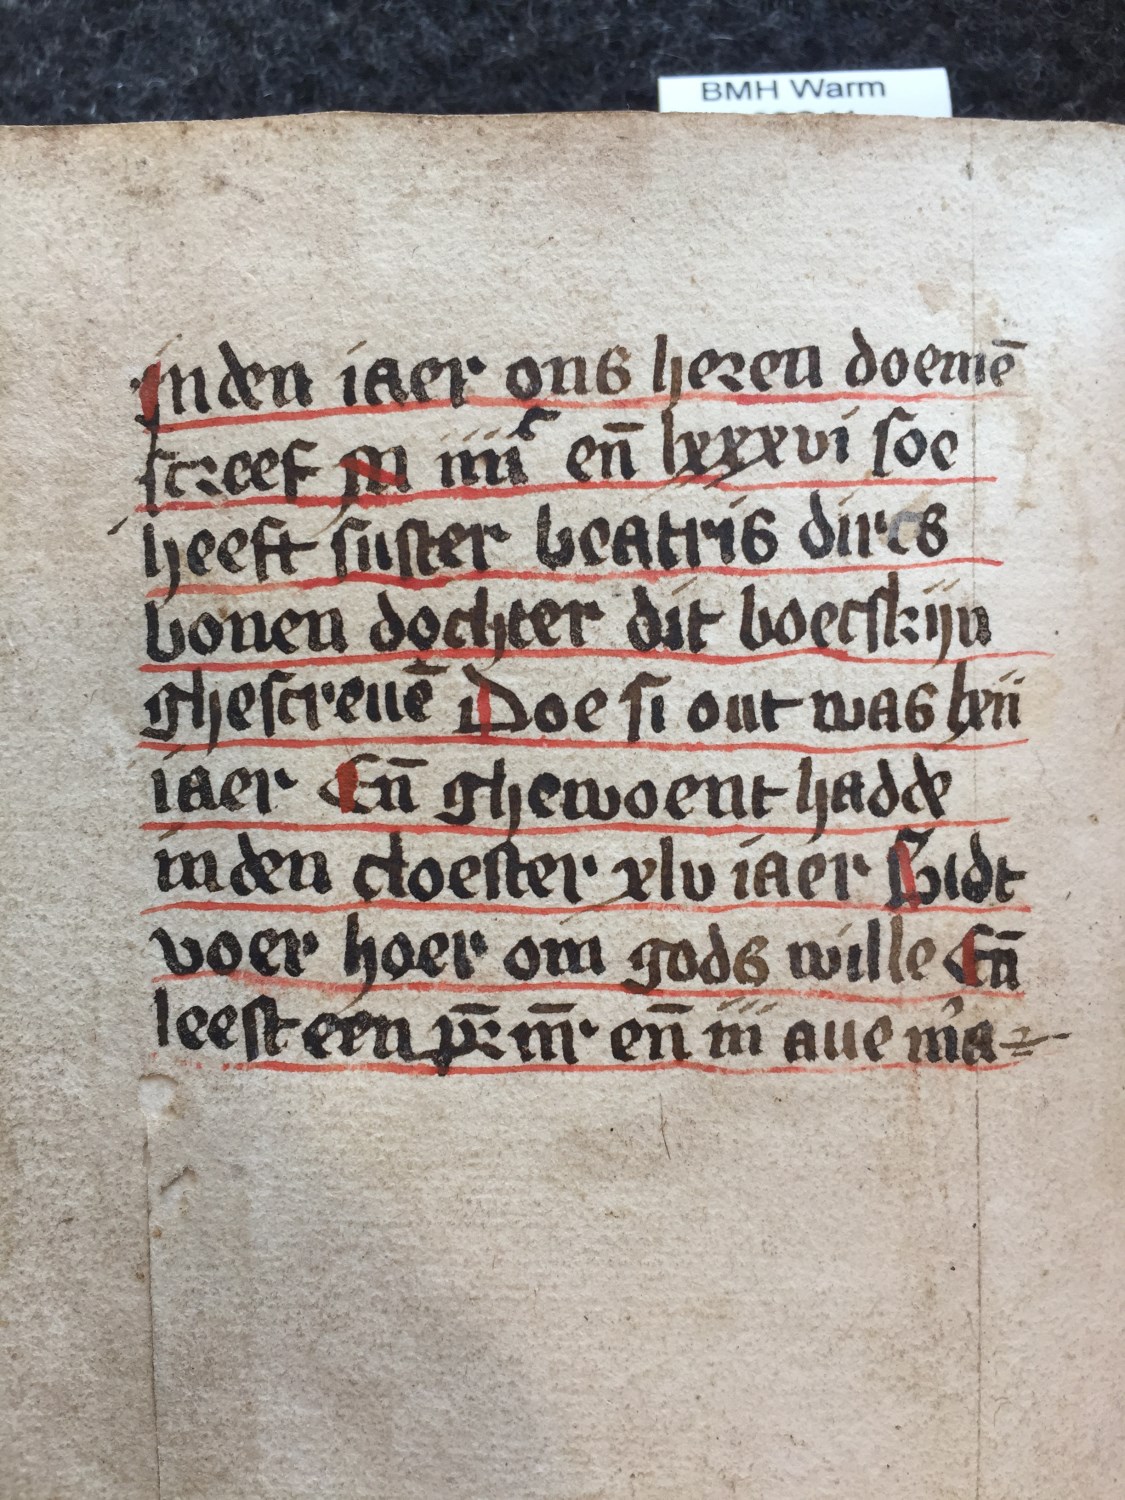 BMH Warm
Inden iaer ons heren doemē
screef M iiiiᶜ en̄ lxxxvi soe
heeft suster beatris dircs
bonen dochter dit boecskijn
ghescreuē Doe si out was lxii
iaer En̄ ghewoent hadde
inden cloester xlv iaer Bidt
voer hoer om gods wille En̄
leest een pr̄ nr̄ en̄ iii aue ma